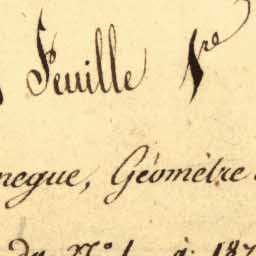 Feuille 1re
negue, Géomètre
du N° 1 à 187